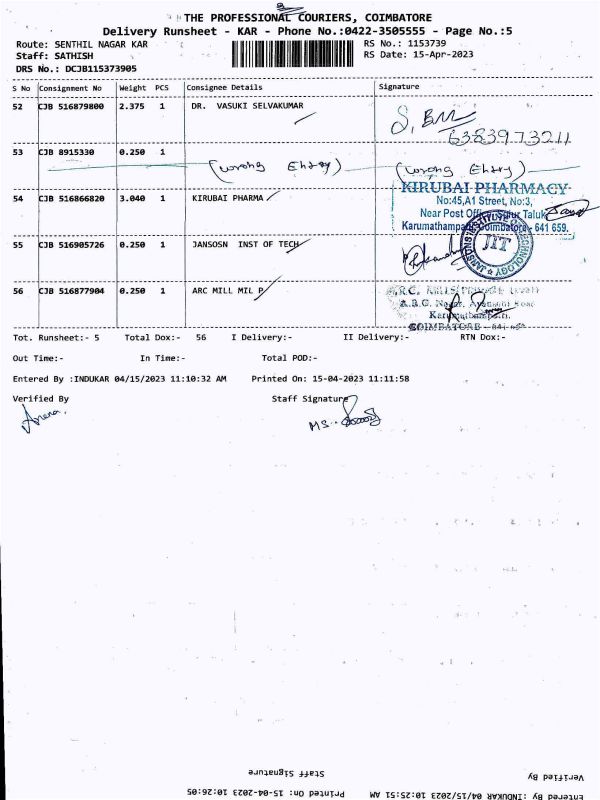 THE PROFESSIONAL COURIERS, COIMBATORE
Delivery Runsheet - KAR - Phone No.:0422-3505555 - Page No.:5
Route: SENTHIL NAGAR KAR RS No.: 1153739
Staff: SATHISH RS Date: 15-Apr-2023
DRS No.: DCJB115373905
S No Consignment No Weight PCS Consignee Details Signature
52 CJB 516879800 2.375 1 DR. VASUKI SELVAKUMAR
6383973211
53 CJB 8915330 0.250 1 (wrong Entry) (wrong Entry)
54 CJB 516866820 3.040 1 KIRUBAI PHARMA
KIRUBAI PHARMACY
No:45,A1 Street, No:3,
Near Post Office, Sulur Taluk
Karumathampatti, Coimbatore - 641 659.
55 CJB 516905726 0.250 1 JANSOSN INST OF TECH
JANSONS INSTITUTE OF TECHNOLOGY
JIT
56 CJB 516877904 0.250 1 ARC MILL MIL P
A.R.C.
Karumathampatti.
COIMBATORE - 641 659
Tot. Runsheet:- 5 Total Dox:- 56 I Delivery:- II Delivery:- RTN Dox:-
Out Time:- In Time:- Total POD:-
Entered By :INDUKAR 04/15/2023 11:10:32 AM Printed On: 15-04-2023 11:11:58
Verified By Staff Signature
MS.
Verified By Staff Signature
Entered By :INDUKAR 04/15/2023 10:25:51 AM Printed On: 15-04-2023 10:26:05